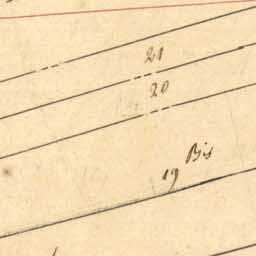 21
20
19 Bis